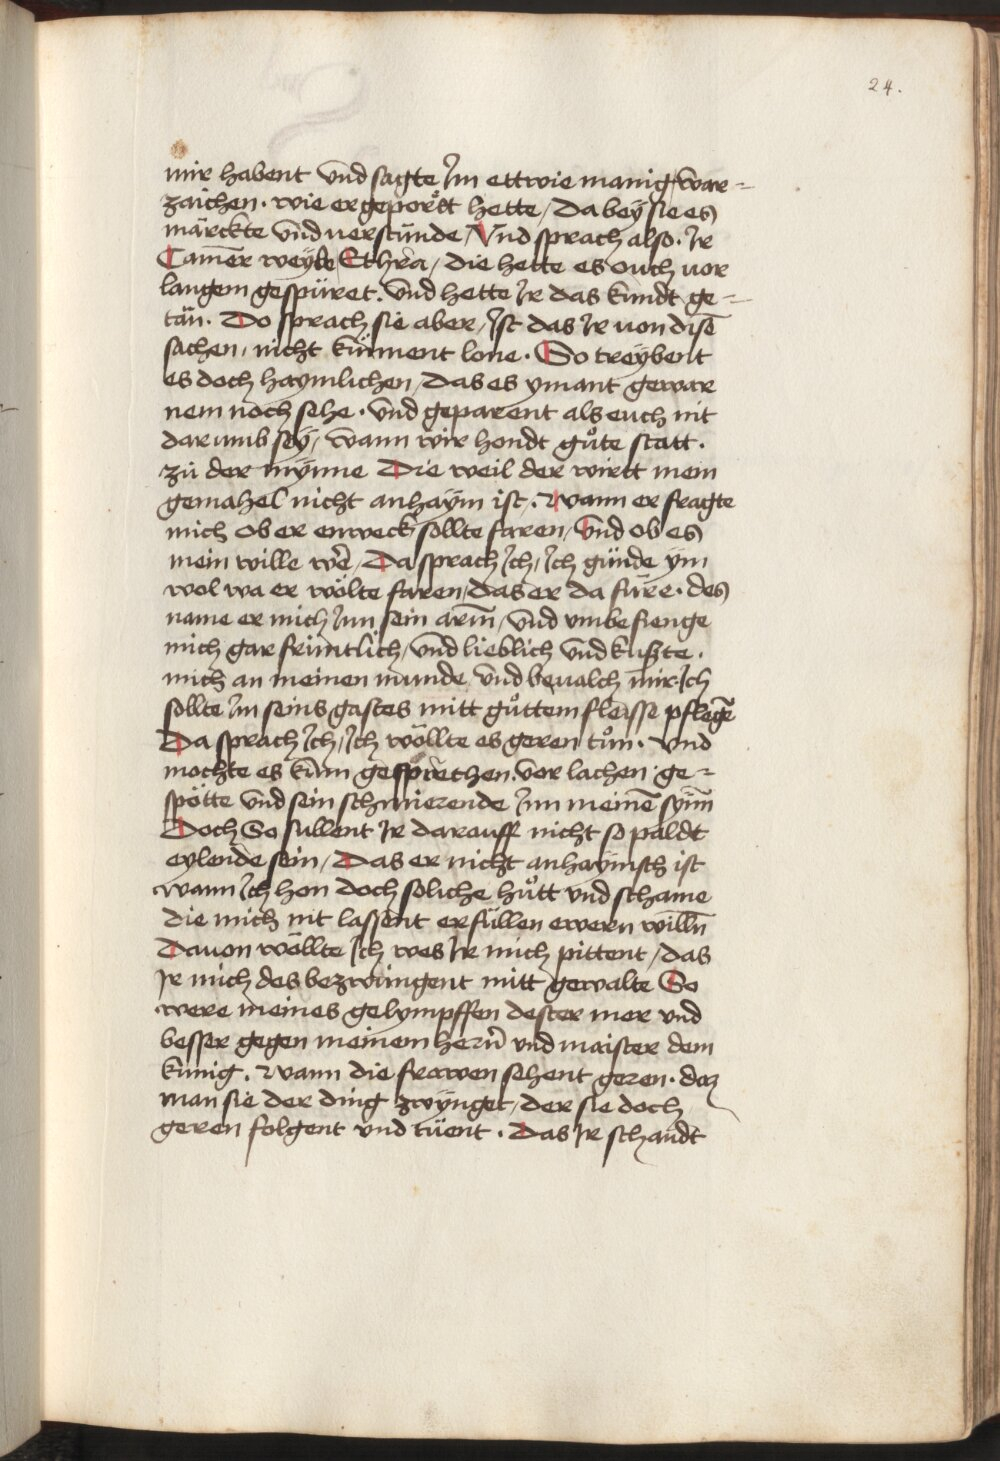 24.
mir habent vnd sagte Im ettwie manig war=
zaichen· wie er geport hette/ da bey sie es
märckte vnd uerstünde/ Vnd sprach also· Ir
Camer weybe Ethra/ die hette es ouch uor
langem gespüret· vnd hette Ir das kundt ge=
tän· Do sprach sie aber/ Ist das Ir uon disē
sachen/ nicht künnent lone· So treÿbent
es doch haymlichen/ das es ymant gewar
nem noch sehe· vnd geparent als euch nit
dar umb seÿ/ wann wir hondt gůte statt·
zü der mÿnne Die weil der wirtt mein
gemahel nicht anhaÿm ist/· Wann er fragte
mich ob er enweck sollte faren/ Vnd ob es
mein wille wê/ Da sprach Ich/ Ich günde ÿm
wol wa er wölte faren/ das er da füre· des
name er mich Inn sein arm̄/ vnd vmbefienge
mich gar frintlich/ vnd lieblich vnd kuszte·
mich an meinen munde vnd beualch mir· Ich
sollte Im seins gastes mitt gůttem fleisse pflegē
Da sprach Ich/ Ich wöllte es geren tůn· Vnd
mochte es küm gesprechen· vor lachen ge=
spötte vnd sein schmierende Inn meinē synn̄
Doch So sullent Ir darauff nicht so paldt
eylende sein/ Das er nicht anhaÿmsch ist
wann Ich hon doch soliche hůtt vnd schame
die mich nit lassent erfüllen ewern willn̄
Dauon wöllte Ich wes Ir mich pittent/ das
Ir mich des bezwüngent mitt gewalte So
were meines gelympffen dester mer vnd
besser gegen meinem hern̄ vnd maister dem
künig· Wann die frawen sehent geren· daz
man sie der ding zwÿnget/ der sie doch
geren folgent vnd tüent· Das Ir schandt